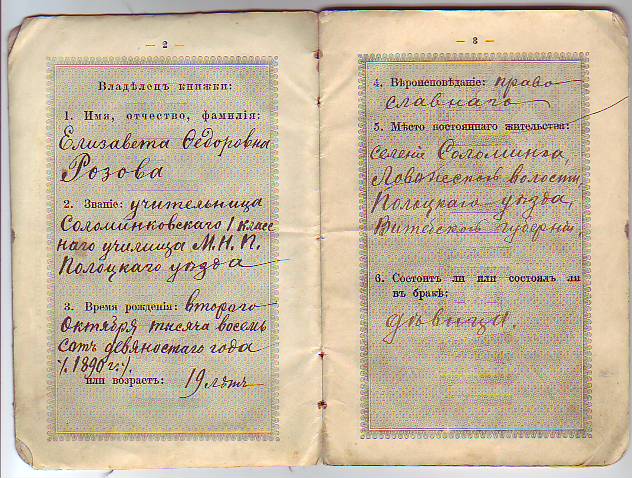 — 2 —
Владѣлецъ книжки:
1. Имя, отчество, фамилія:
Елизавета Ѳедоровна
Розова
2. Званіе: учительница
Соломинковскаго 1 класс
наго училища М. Н. П.
Полоцкаго уѣзда
3. Время рожденія: второго
Октября тысяча восемь
сотъ девяностаго года
/. 1890 г. /.
или возрастъ: 19 лѣтъ
— 3 —
4. Вѣроисповѣданіе: право
славнаго
5. Мѣсто постояннаго жительства:
селеніи Соломинка,
волости,
Полоцкаго уѣзда,
Витебской губерніи,
6. Состоитъ ли или состоялъ ли
въ бракѣ:
дѣвица.